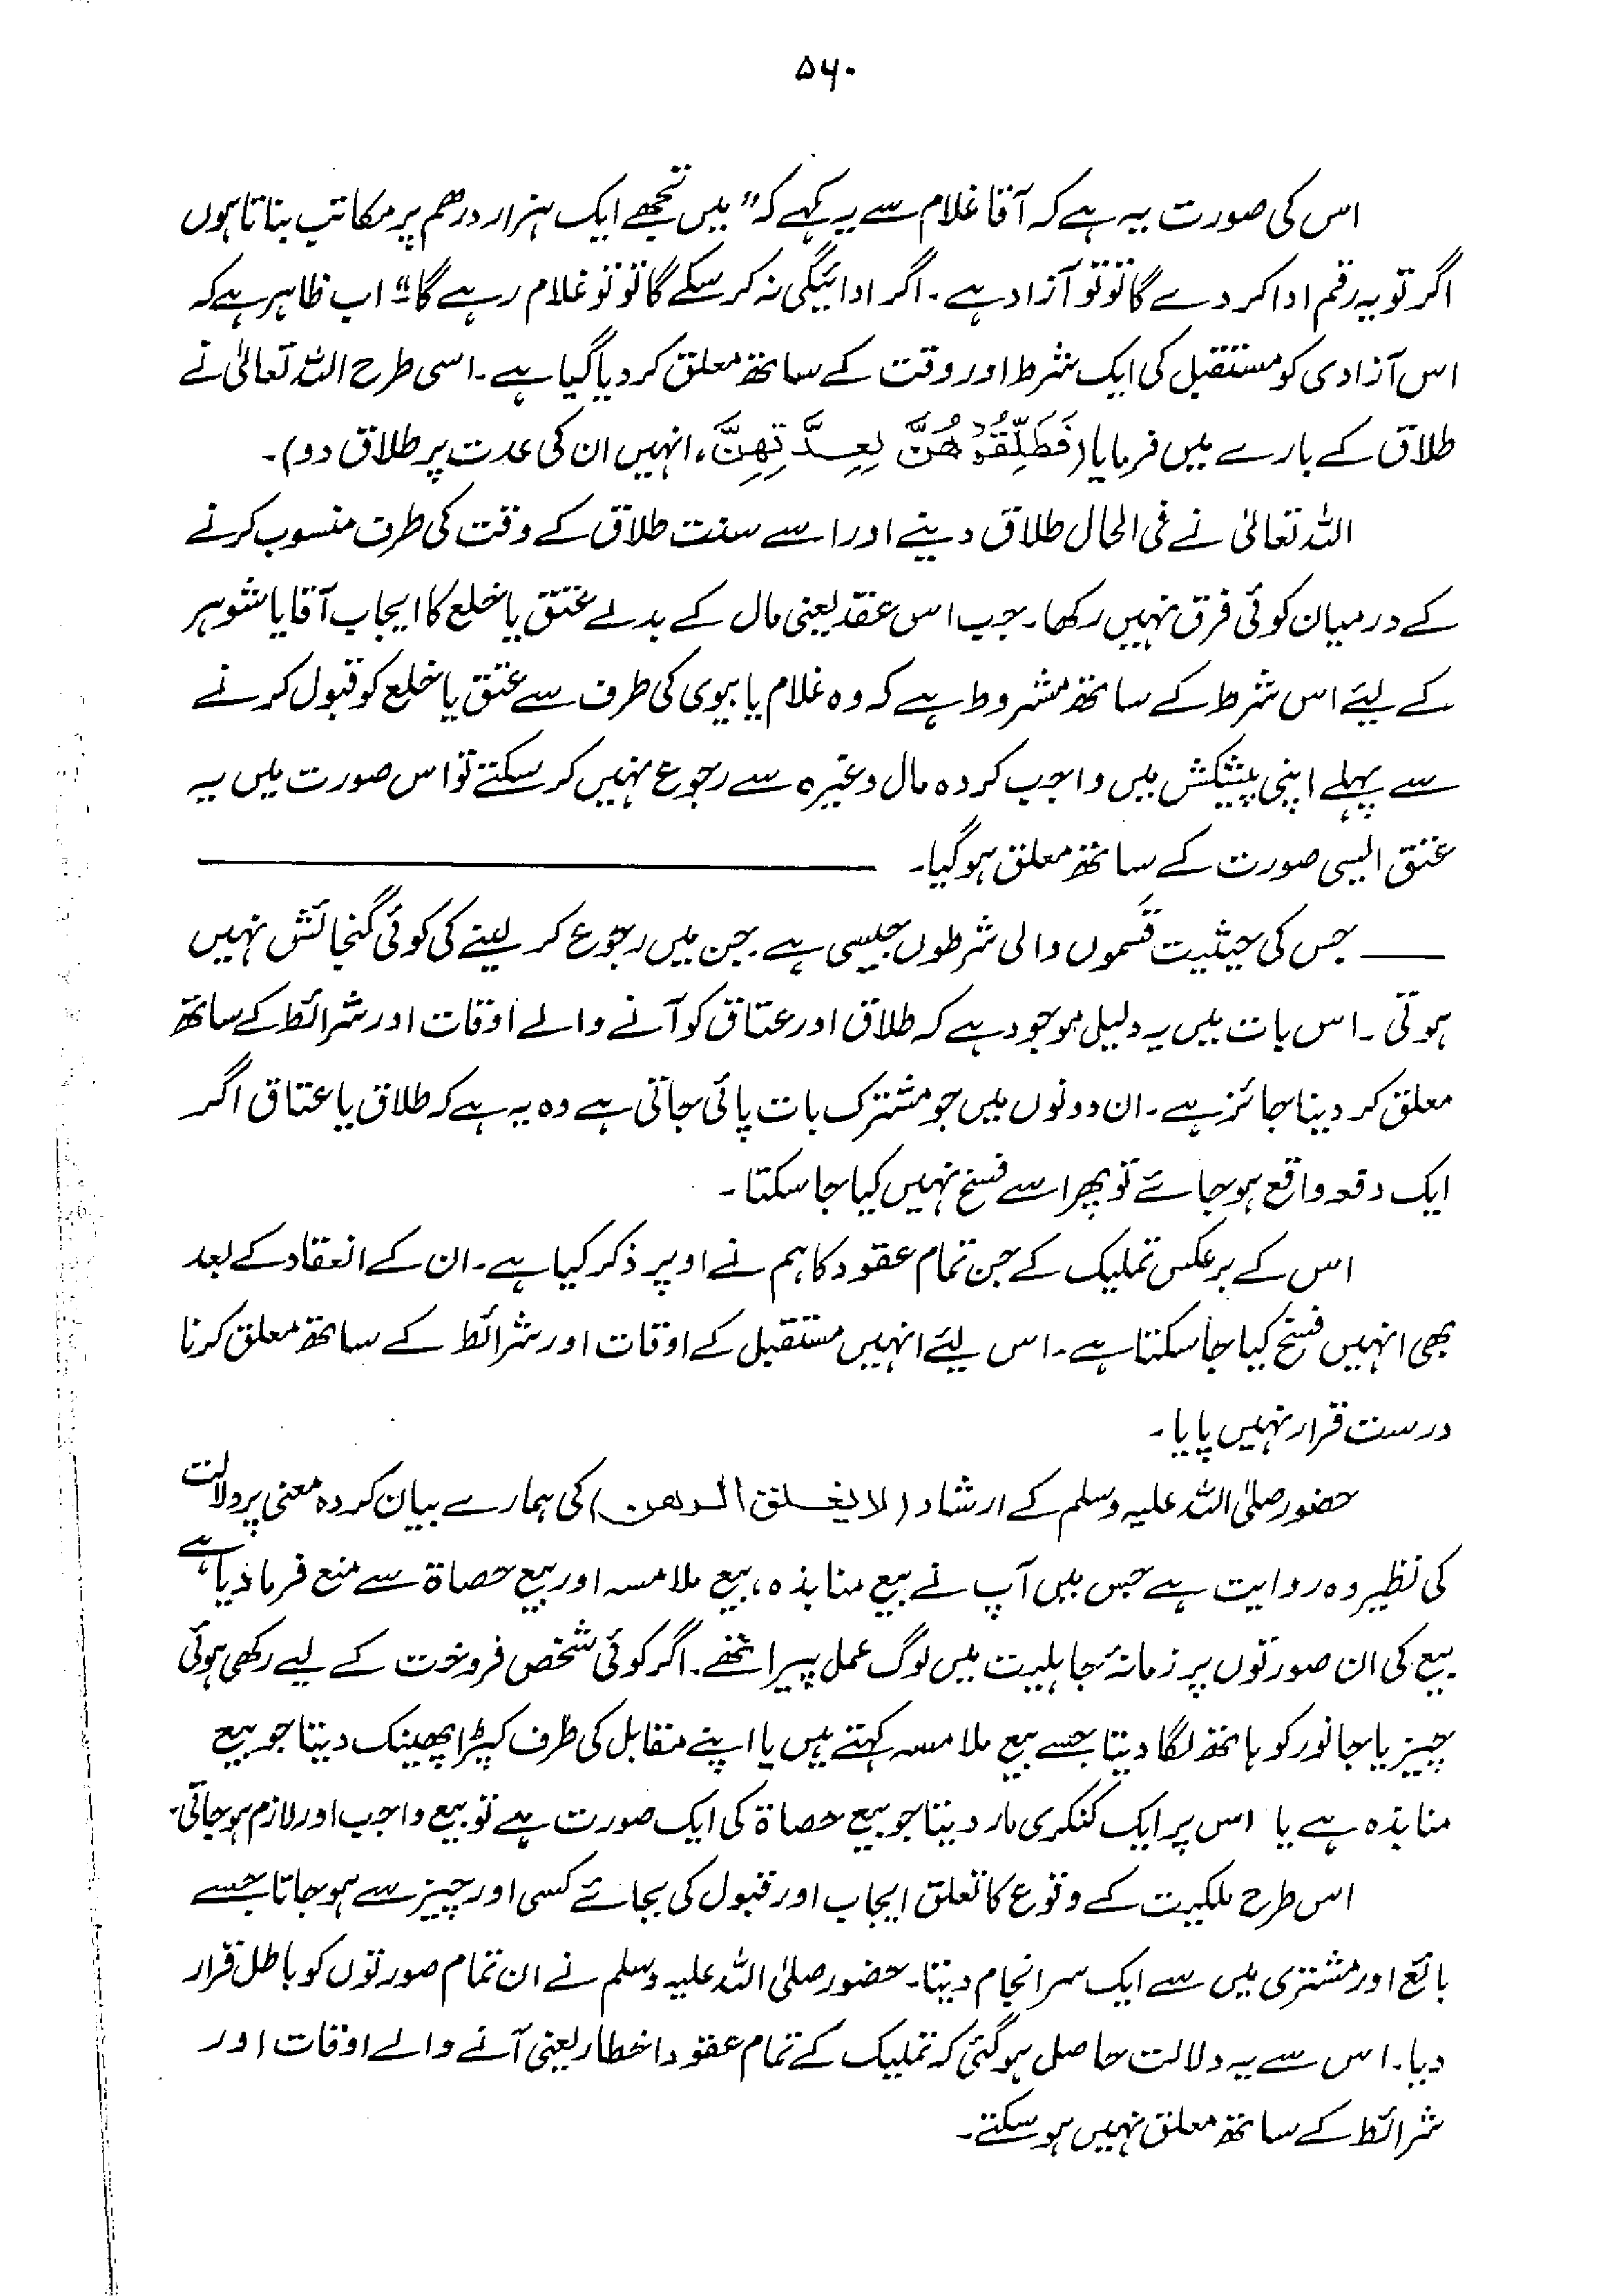 ۵۶۰
اس کی صورت یہ ہے کہ آقا غلام سے یہ کہے کہ" میں تجھے ایک ہزار درھم پر مکاتب بناتا ہوں
اگر تو یہ رقم ادا کر دے گا تو تو آزاد ہے۔ اگر ادائیگی نہ کر سکے گا تو تو غلام رہے گا" اب ظاہر ہے کہ
اس آزادی کو مستقبل کی ایک شرط اور وقت کے ساتھ معلق کر دیا گیا ہے۔ اسی طرح اللہ تعالیٰ نے
طلاق کے بارے میں فرمایا (فَطَلِّقُوْهُنَّ لِعِدَّتِهِنَّ، انہیں ان کی عدت پر طلاق دو)۔
اللہ تعالیٰ نے فی الحال طلاق دینے اور اسے سنت طلاق کے وقت کی طرف منسوب کرنے
کے درمیان کوئی فرق نہیں رکھا۔ جب اس عقد یعنی مال کے بدلے عتق یا خلع کا ایجاب آقا یا شوہر
کے لیئے اس شرط کے ساتھ مشروط ہے کہ وہ غلام یا بیوی کی طرف سے عتق یا خلع کو قبول کرنے
سے پہلے اپنی پیشکش میں واجب کردہ مال وغیرہ سے رجوع نہیں کر سکتے تو اس صورت میں یہ
عتق ایسی صورت کے ساتھ معلق ہو گیا۔
جس کی حیثیت قسموں والی شرطوں جیسی ہے۔ جن میں رجوع کر لینے کی کوئی گنجائش نہیں
ہوتی۔ اس بات میں یہ دلیل موجود ہے کہ طلاق اور عتاق کو آنے والے اوقات اور شرائط کے ساتھ
معلق کر دینا جائز ہے۔ ان دونوں میں جو مشترک بات پائی جاتی ہے وہ یہ ہے کہ طلاق یا عتاق اگر
ایک دفعہ واقع ہو جائے تو پھر اسے فسخ نہیں کیا جا سکتا۔
اس کے برعکس تملیک کے جن تمام عقود کا ہم نے اوپر ذکر کیا ہے۔ ان کے انعقاد کے بعد
بھی انہیں فسخ کیا جا سکتا ہے۔ اس لیئے انہیں مستقبل کے اوقات اور شرائط کے ساتھ معلق کرنا
درست قرار نہیں پایا۔
حضور صلی اللہ علیہ وسلم کے ارشاد (لا یغلق الرهن) کی ہمارے بیان کردہ معنی پر دلالت
کی نظیر وہ روایت ہے جس میں آپ نے بیع منابذہ، بیع ملامسہ اور بیع حصاۃ سے منع فرما دیا ہے
بیع کی ان صورتوں پر زمانۂ جاہلیت میں لوگ عمل پیرا تھے۔ اگر کوئی شخص فروخت کے لیے رکھی ہوئی
چیز یا جانور کو ہاتھ لگا دیتا جسے بیع ملامسہ کہتے ہیں یا اپنے مقابل کی طرف کپڑا پھینک دیتا جو بیع
منابذہ ہے یا اس پر ایک کنکری مار دیتا جو بیع حصاۃ کی ایک صورت ہے تو بیع واجب اور لازم ہو جاتی۔
اس طرح ملکیت کے وقوع کا تعلق ایجاب اور قبول کی بجائے کسی اور چیز سے ہو جاتا جسے
بائع اور مشتری میں سے ایک سرانجام دیتا۔ حضور صلی اللہ علیہ وسلم نے ان تمام صورتوں کو باطل قرار
دیا۔ اس سے یہ دلالت حاصل ہو گئی کہ تملیک کے تمام عقود اخطار یعنی آنے والے اوقات اور
شرائط کے ساتھ معلق نہیں ہو سکتے۔